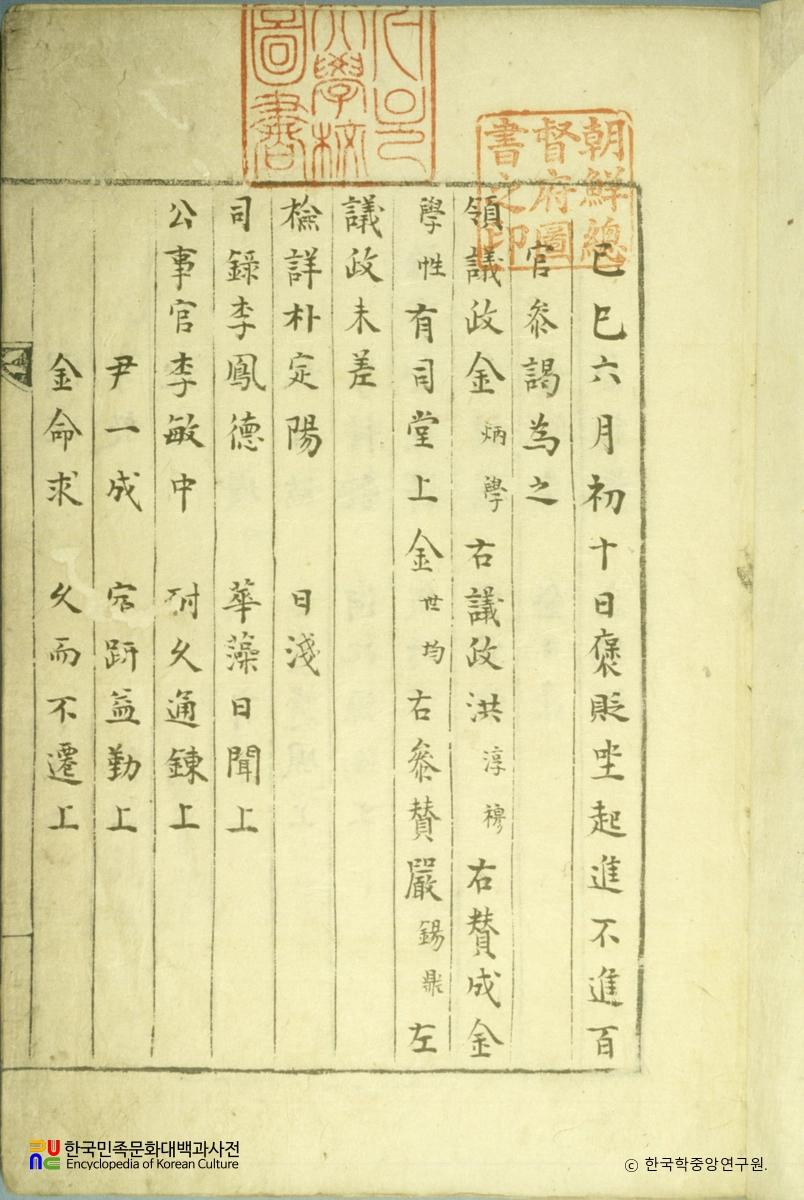 朝鮮總
督府圖
書之印
學校
圖書
己巳六月初十日褒貶坐起進不進百
官叅謁為之
領議政金炳學右議政洪淳穆右贊成金
學性有司堂上金世均右叅贊嚴錫鼎左
議政未差
檢詳朴定陽 日淺
司錄李鳳德 華藻日聞上
公事官李敏中 耐久通鍊上
尹一成 益勤上
金命求 久而不遷上
한국민족문화대백과사전
Encyclopedia of Korean Culture
ⓒ 한국학중앙연구원.